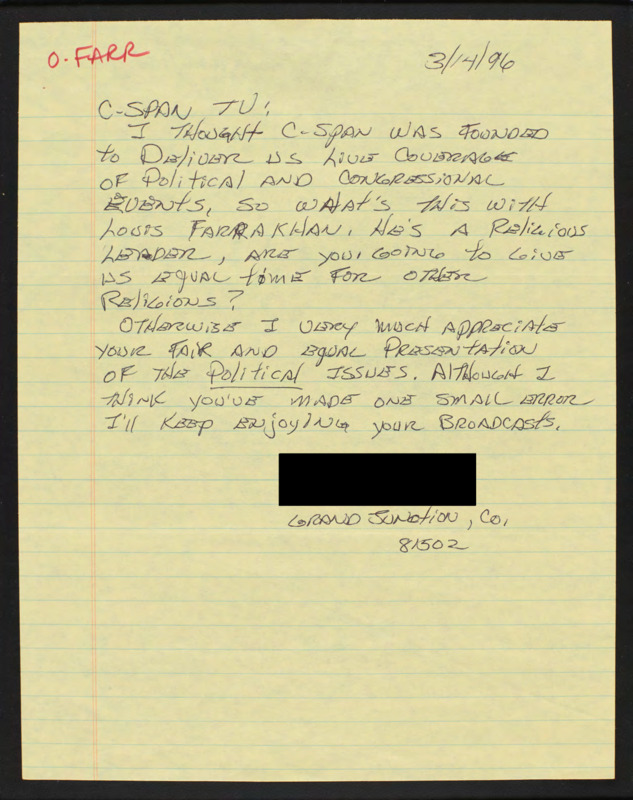 O. FARR
3/14/96
C-SPAN TV:
I THOUGHT C-SPAN WAS FOUNDED
to DELIVER US LIVE COVERAGE
OF Political AND CONGRESSIONAL
EVENTS, SO WHAT'S THIS WITH
LOUIS FARRAKHAN. HE'S A RELIGIOUS
LEADER, ARE YOU GOING to GIVE
US EQUAL time FOR OTHER
RELIGIONS?
OTHERWISE I VERY MUCH APPRECIATE
YOUR FAIR AND EQUAL PRESENTATION
OF THE Political ISSUES. ALTHOUGH I
THINK YOU'VE MADE ONE SMALL ERROR
I'll KEEP ENjOYING YOUR BROADCASTS.
GRAND JUNCTION, CO,
81502